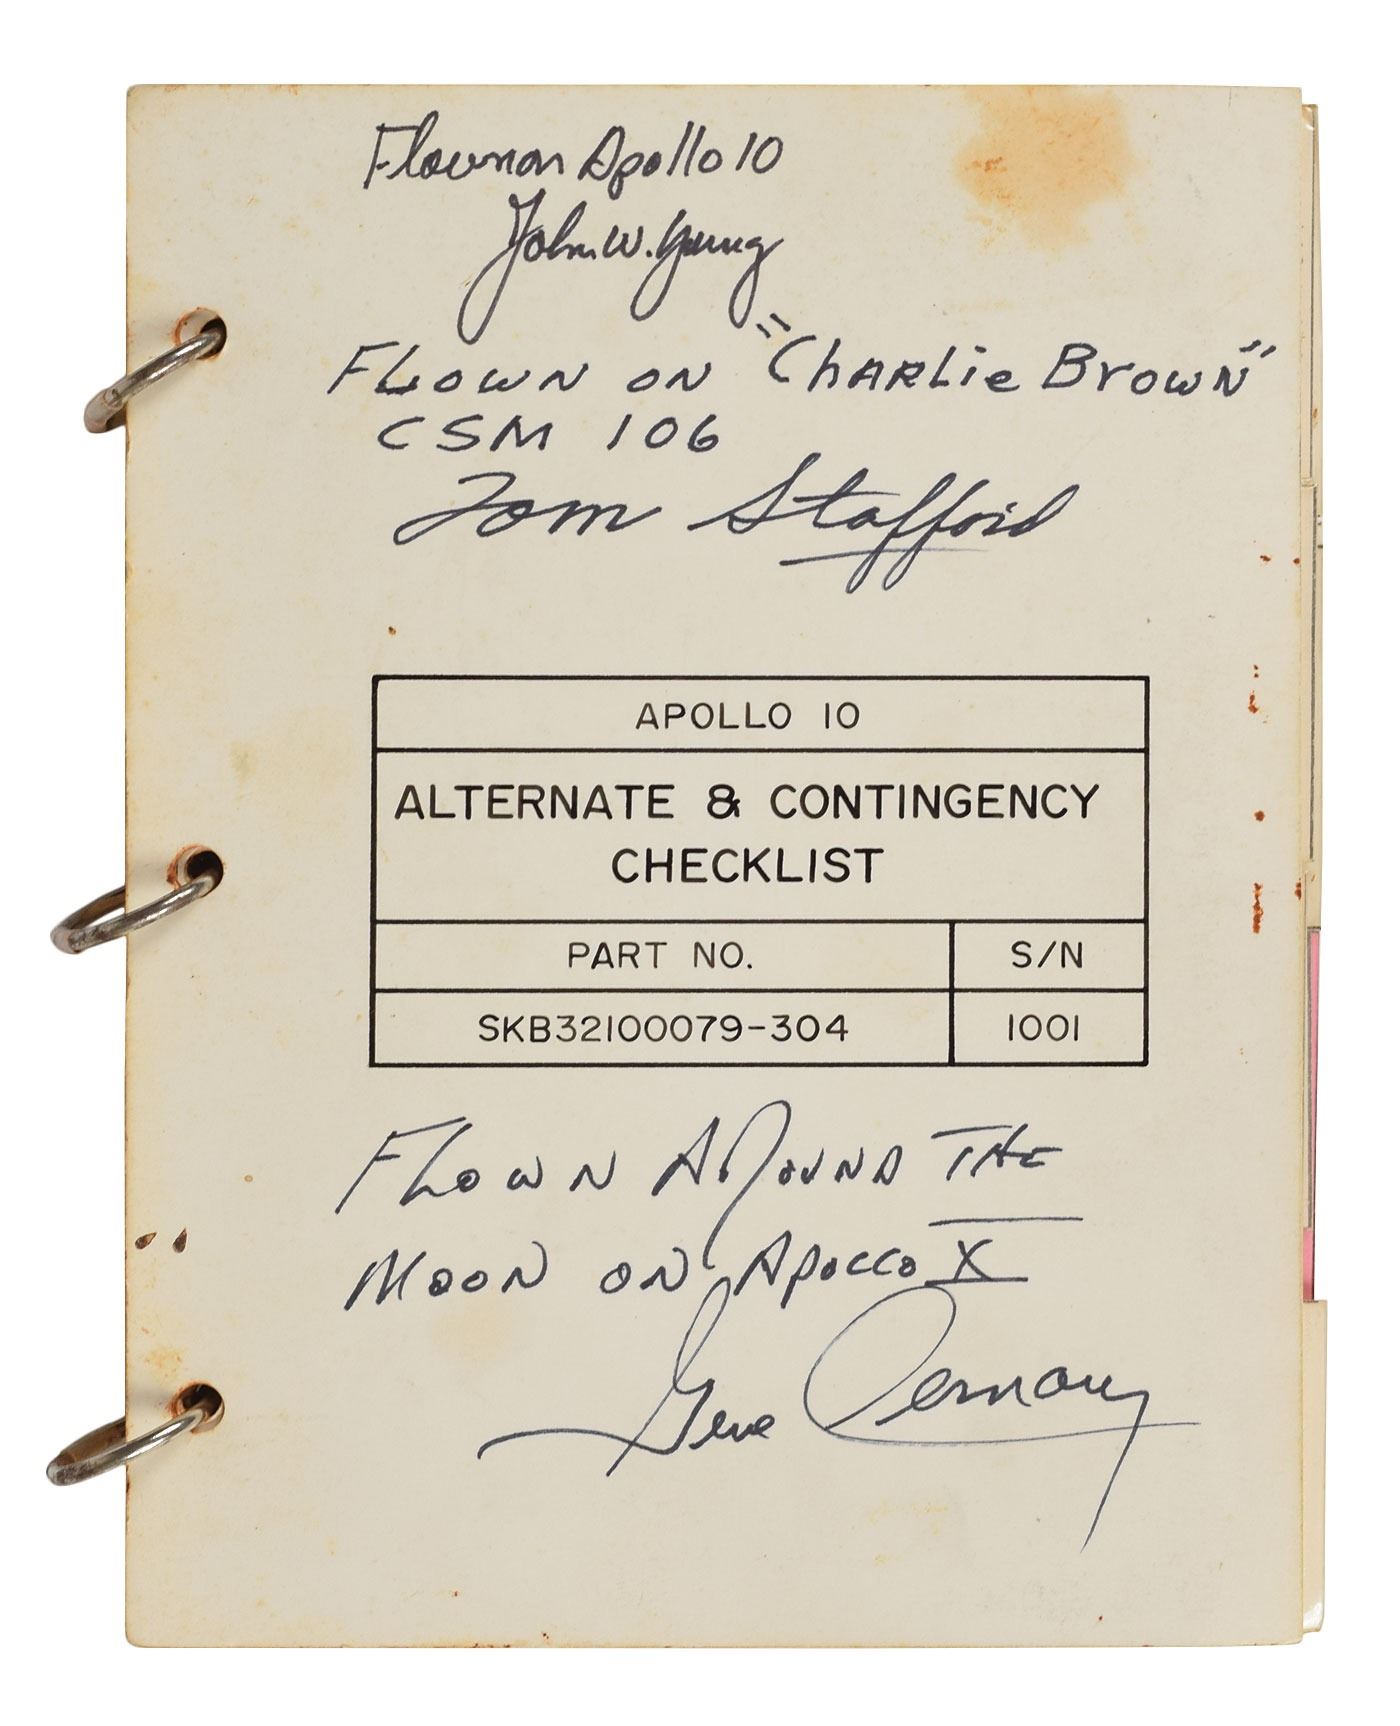 Flown on Apollo 10
John W. Young
FLOWN ON "CHARLie BrowN"
CSM 106
Tom Stafford
APOLLO 10
ALTERNATE & CONTINGENCY
CHECKLIST
PART NO. S/N
SKB32100079-304 1001
FLOWN AROUND THE
MOON ON APOLLO X
Gene Cernan